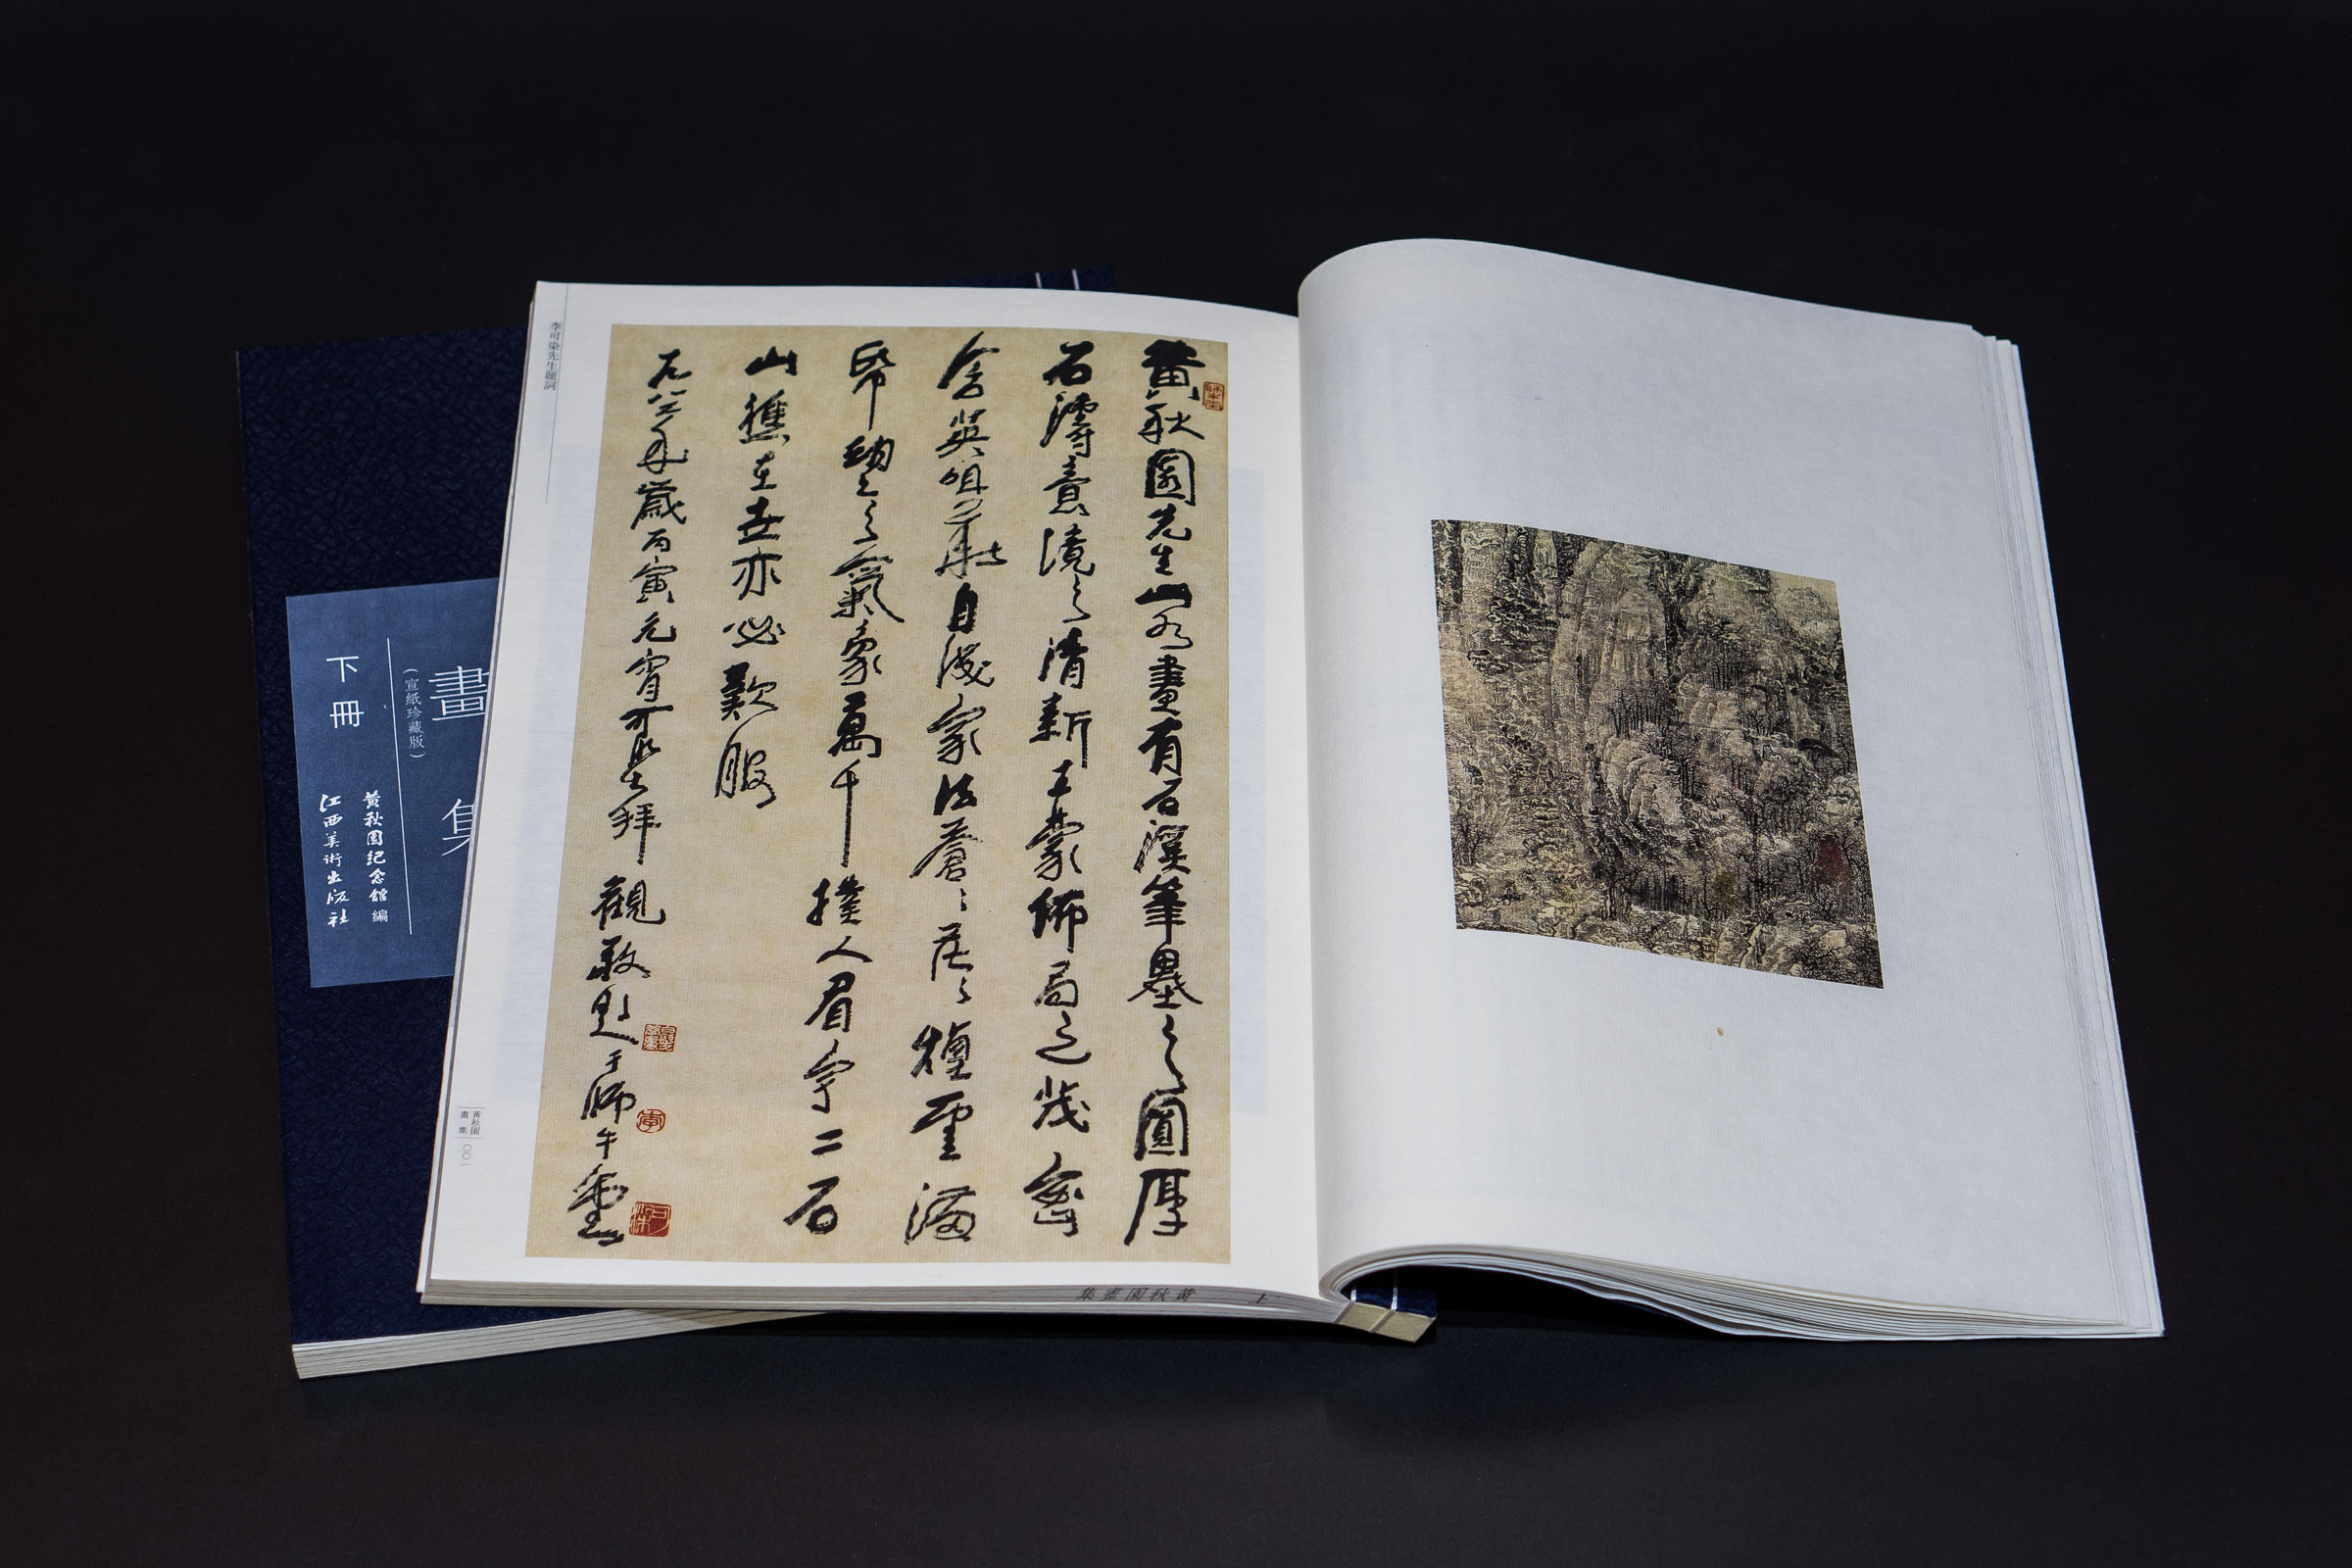 李可染先生題詞
黃秋園先生山水畫有石溪筆墨之圓厚
石濤意境之清新王蒙佈局之茂密
含英咀華自成家法蒼蒼茫茫煙雲滿
帋之氣象萬千撲人眉宇二石
山樵在世亦必歎服
一九八六年歲丙寅元宵可染拜觀敬題于師牛堂
可染
李
黃秋園
畫集
〇〇一
黃秋園畫集 上
畫集
(宣紙珍藏版)
下冊
黃秋園紀念館編
江西美術出版社